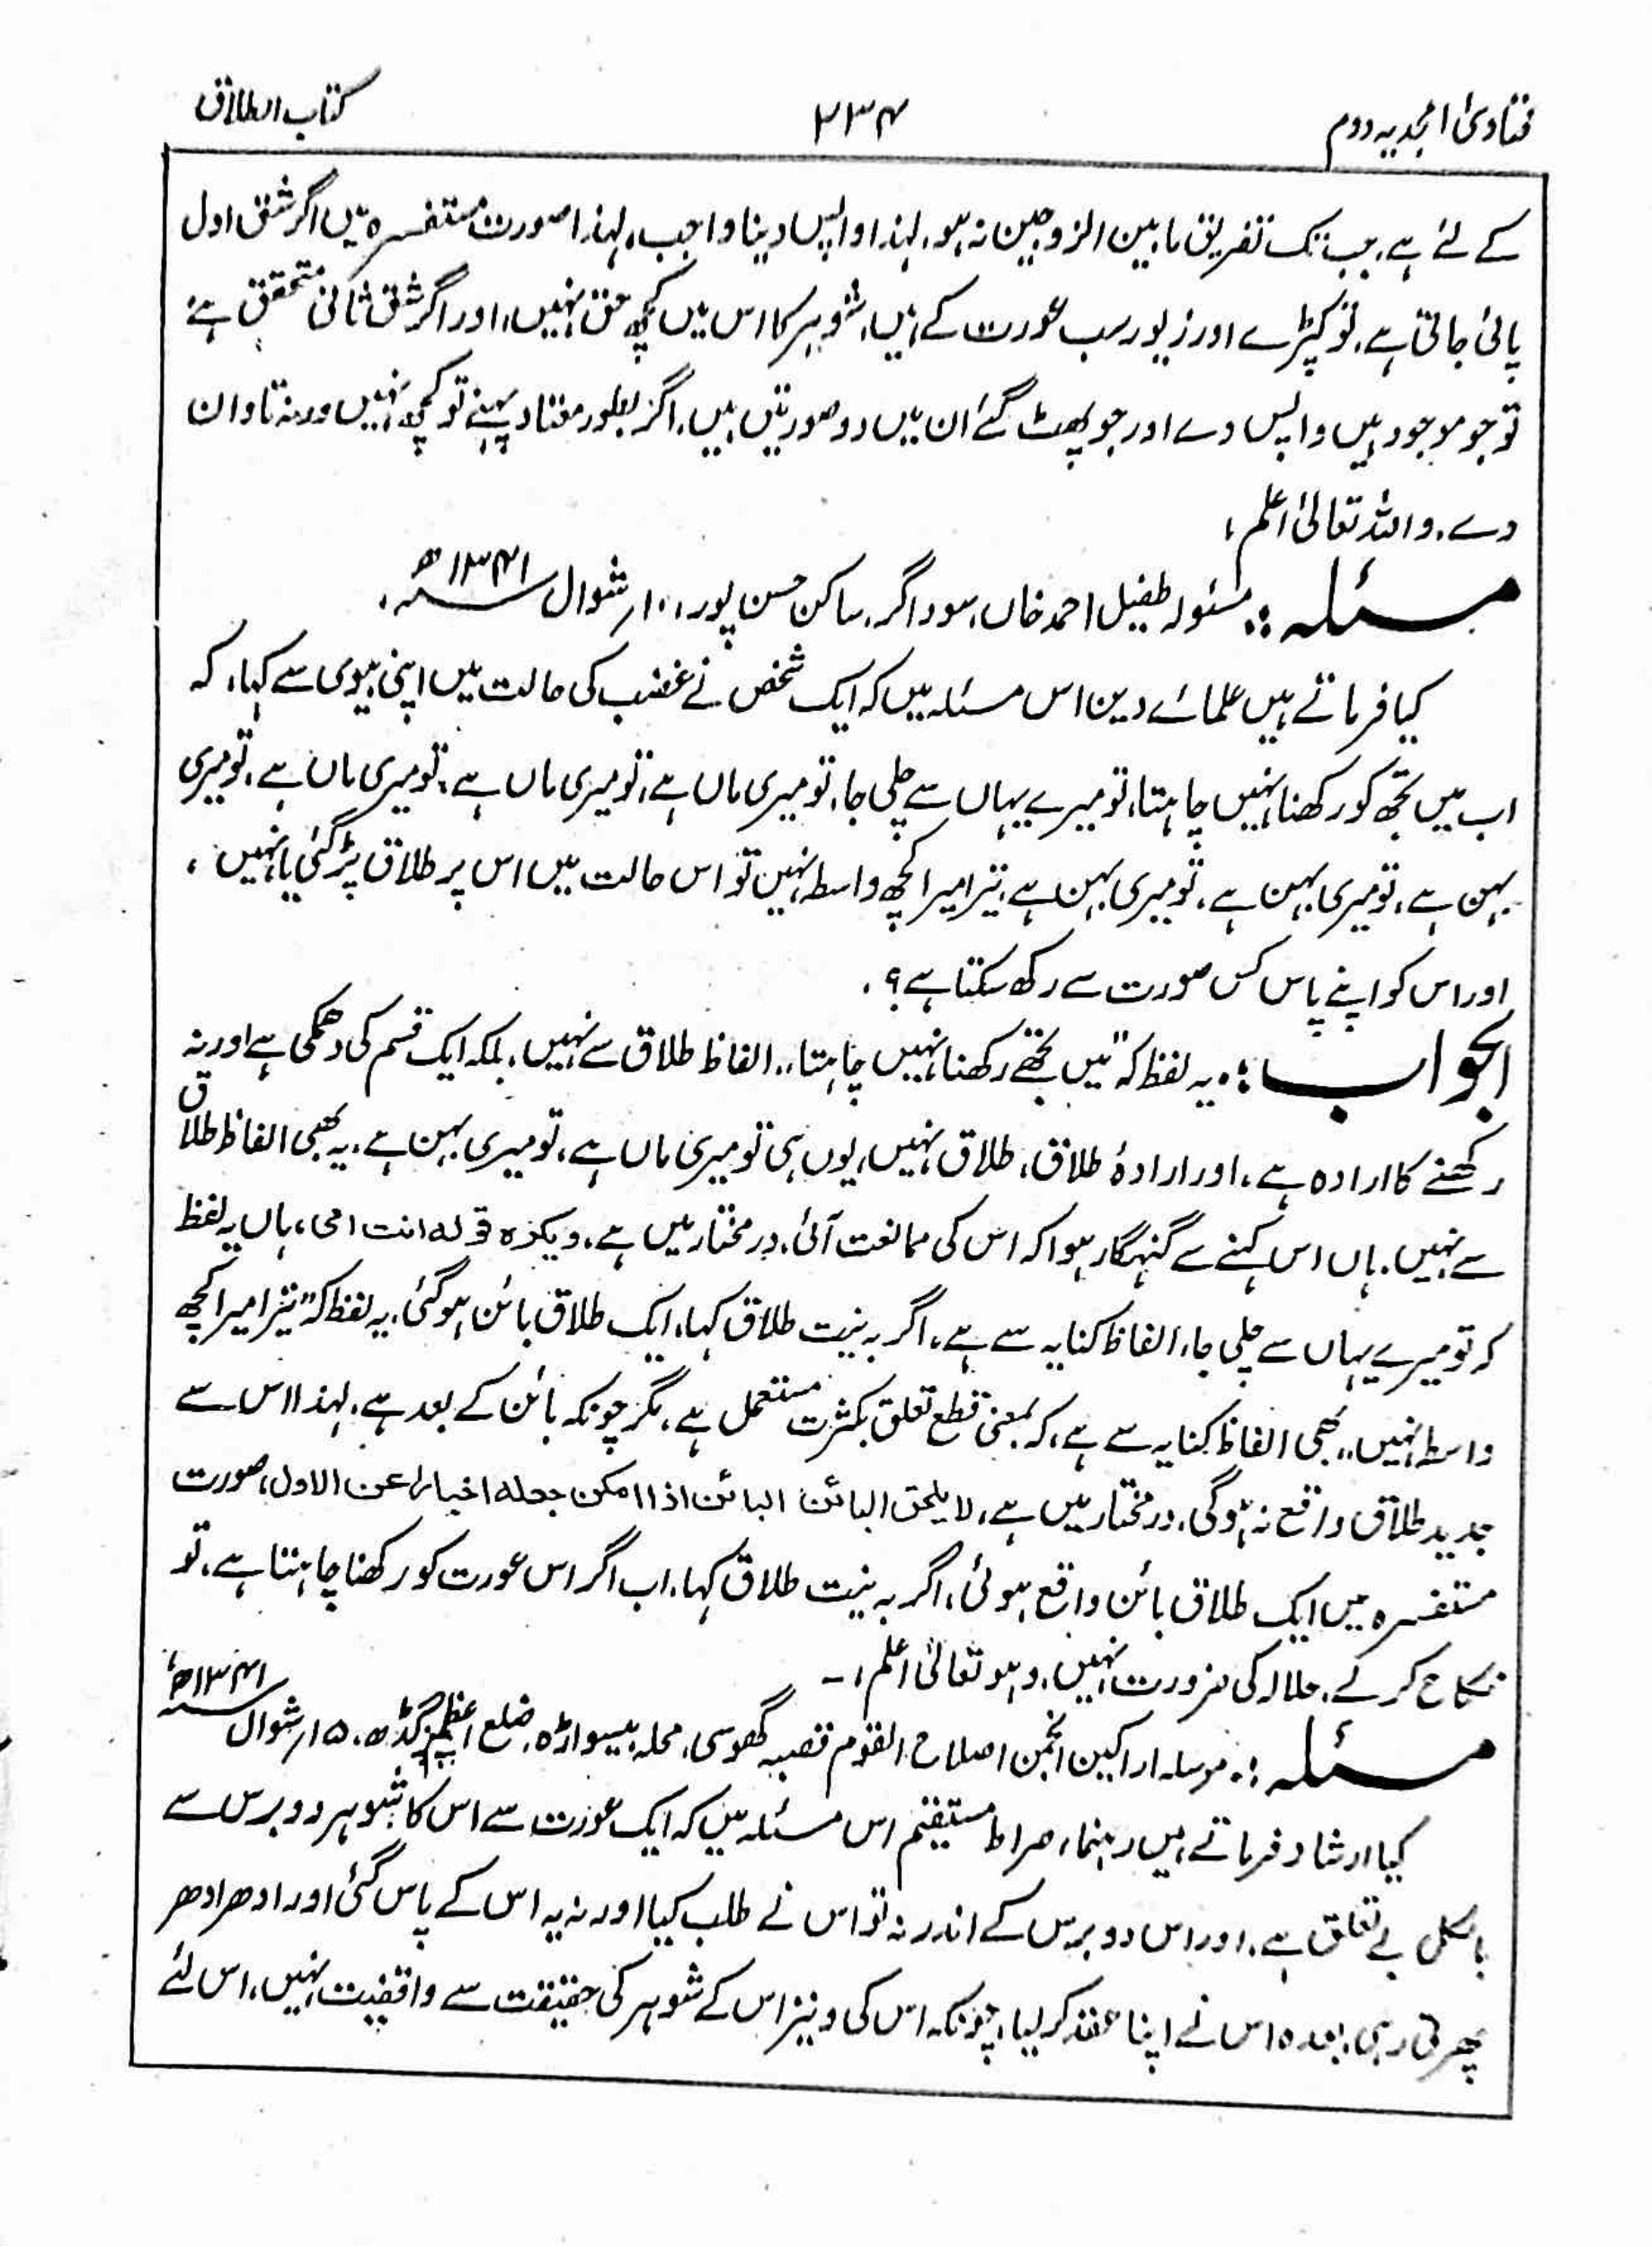 فتاویٰ امجدیہ دوم
۲۳۴
کتاب الطلاق
کے لئے ہے، جب تک تفریق مابین الزوجین نہ ہو، لہٰذا واپس دینا واجب، لہٰذا صورت مستفسرہ میں اگر شق اول
پائی جاتی ہے، تو کپڑے اور زیور سب عورت کے ہیں، شوہر کا اس میں کچھ حق نہیں، اور اگر شق ثانی متحقق ہے
تو جو موجود ہیں واپس دے اور جو پھٹ گئے ان میں دو صورتیں ہیں، اگر بطور معتاد پہنے تو کچھ نہیں ورنہ تاوان
دے، واللہ تعالیٰ اعلم،
مسئلہ :۔ مسئولہ طفیل احمد خاں، سوداگر، ساکن حسن پور، ۱۰ شوال ۱۳۴۱ھ،
کیا فرماتے ہیں علمائے دین اس مسئلہ میں کہ ایک شخص نے غضب کی حالت میں اپنی بیوی سے کہا، کہ
اب میں تجھ کو رکھنا نہیں چاہتا، تو میرے یہاں سے چلی جا، تو میری ماں ہے، تو میری ماں ہے، تو میری ماں ہے، تو میری
بہن ہے، تو میری بہن ہے، تو میری بہن ہے، تیرا میرا کچھ واسطہ نہیں تو اس حالت میں اس پر طلاق پڑ گئی یا نہیں،
اور اس کو اپنے پاس کس صورت سے رکھ سکتا ہے؟،
الجواب :۔ یہ لفظ کہ "میں تجھے رکھنا نہیں چاہتا،، الفاظ طلاق سے نہیں، بلکہ ایک قسم کی دھمکی ہے اور نہ
رکھنے کا ارادہ ہے، اور ارادۂ طلاق، طلاق نہیں، یوں ہی تو میری ماں ہے، تو میری بہن ہے، یہ بھی الفاظ طلاق
سے نہیں، ہاں اس کہنے سے گنہگار ہوا کہ اس کی ممانعت آئی، در مختار میں ہے، ویکرہ قولہ انت امی، ہاں یہ لفظ
کہ تو میرے یہاں سے چلی جا، الفاظ کنایہ سے ہے، اگر بہ نیت طلاق کہا، ایک طلاق بائن ہو گئی، یہ لفظ کہ "تیرا میرا کچھ
واسطہ نہیں،، بھی الفاظ کنایہ سے ہے، کہ بمعنی قطع تعلق بکثرت مستعمل ہے، مگر چونکہ بائن کے بعد ہے، لہذا اس سے
جدید طلاق واقع نہ ہوگی، در مختار میں ہے، لا یلحق البائن البائن اذا امکن جعلہ اخبارا عن الاول، صورت
مستفسرہ میں ایک طلاق بائن واقع ہوئی، اگر بہ نیت طلاق کہا، اب اگر اس عورت کو رکھنا چاہتا ہے، تو
نکاح کر لے، حلالہ کی ضرورت نہیں، وہو تعالیٰ اعلم،۔
مسئلہ :۔ مرسلہ اراکین انجمن اصلاح القوم قصبہ گھوسی، محلہ بیسواڑہ، ضلع اعظم گڈھ، ۱۵ شوال ۱۳۴۱ھ
کیا ارشاد فرماتے ہیں رہنماء صراط مستقیم اس مسئلہ میں کہ ایک عورت سے اس کا شوہر دو برس سے
بالکل بے تعلق ہے، اور اس دو برس کے اندر نہ تو اس نے طلب کیا اور نہ یہ اس کے پاس گئی اور ادھر ادھر
پھرتی رہی، بعدہ اس نے اپنا عقد کر لیا، چونکہ اس کی و نیز اس کے شوہر کی حقیقت سے واقفیت نہیں، اس لئے